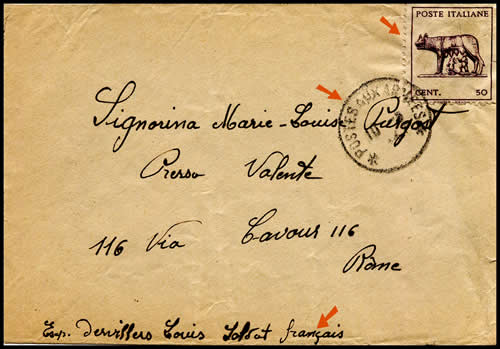 POSTE ITALIANE
CENT. 50
* POSTES AUX ARMEES *
Signorina Marie-Louise
Presso Valente
116 Via Cavour 116
Rome
Exp. Dervillers Louis Soldat français